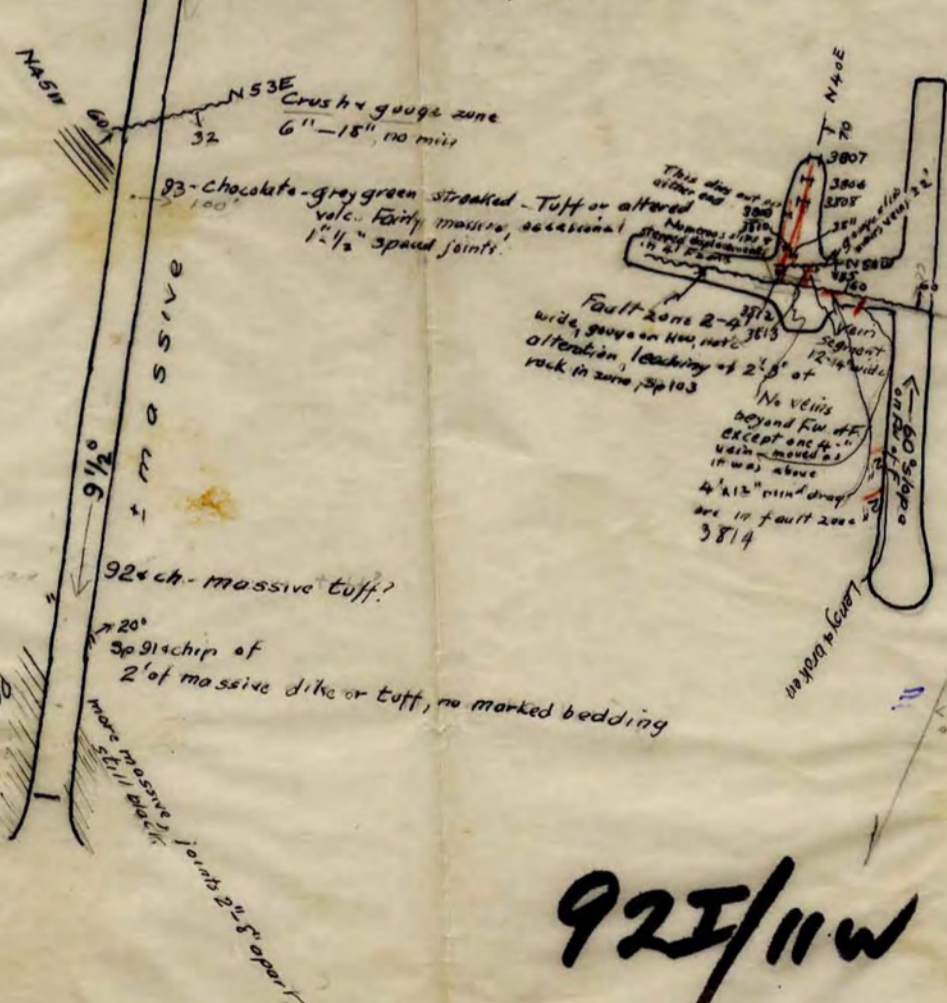 N45W
60
N53E
32
Crush & gouge zone
6"-18", no min
93-Chocolate-grey green streaked - Tuff or altered
100'
volc. Fairly massive, occasional
1"-1/2" spaced joints.
± massive
9 1/2°
92 & ch - massive tuff?
20°
Sp 91 & chip of
2' of massive dike or tuff, no marked bedding
more massive, joints 2"-8" apart
still black
N40E
70
3807
3806
3808
This dies out at
either end
3810
3811
Numerous slips &
in 4' F zone
N50W
60
3812
3813
Fault zone 2-4'
wide, gouge on HW,
alteration, leaching of 2'-3' of
rock in zone, Sp 103
Vein
segment
12-14" wide
No veins
beyond FW of F,
except one 4"
vein - moved as
it was above
4' x 13" min'd drag
ore in fault zone
3814
60° slope
on FW of F
Lensy & broken
92I/11W